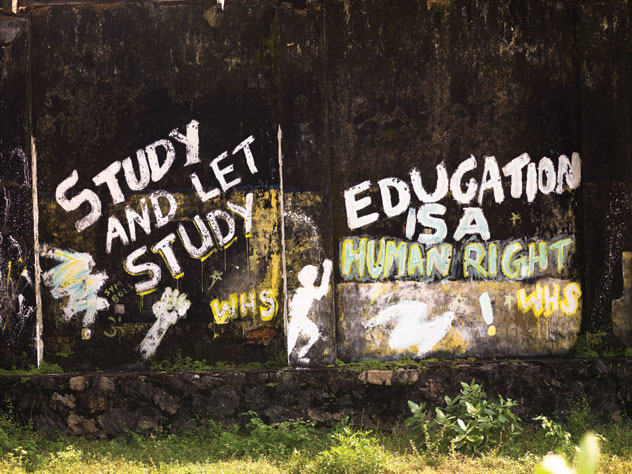 STUDY
AND LET
STUDY
WHS
EDUCATION
IS A
HUMAN RIGHT
WHS
!